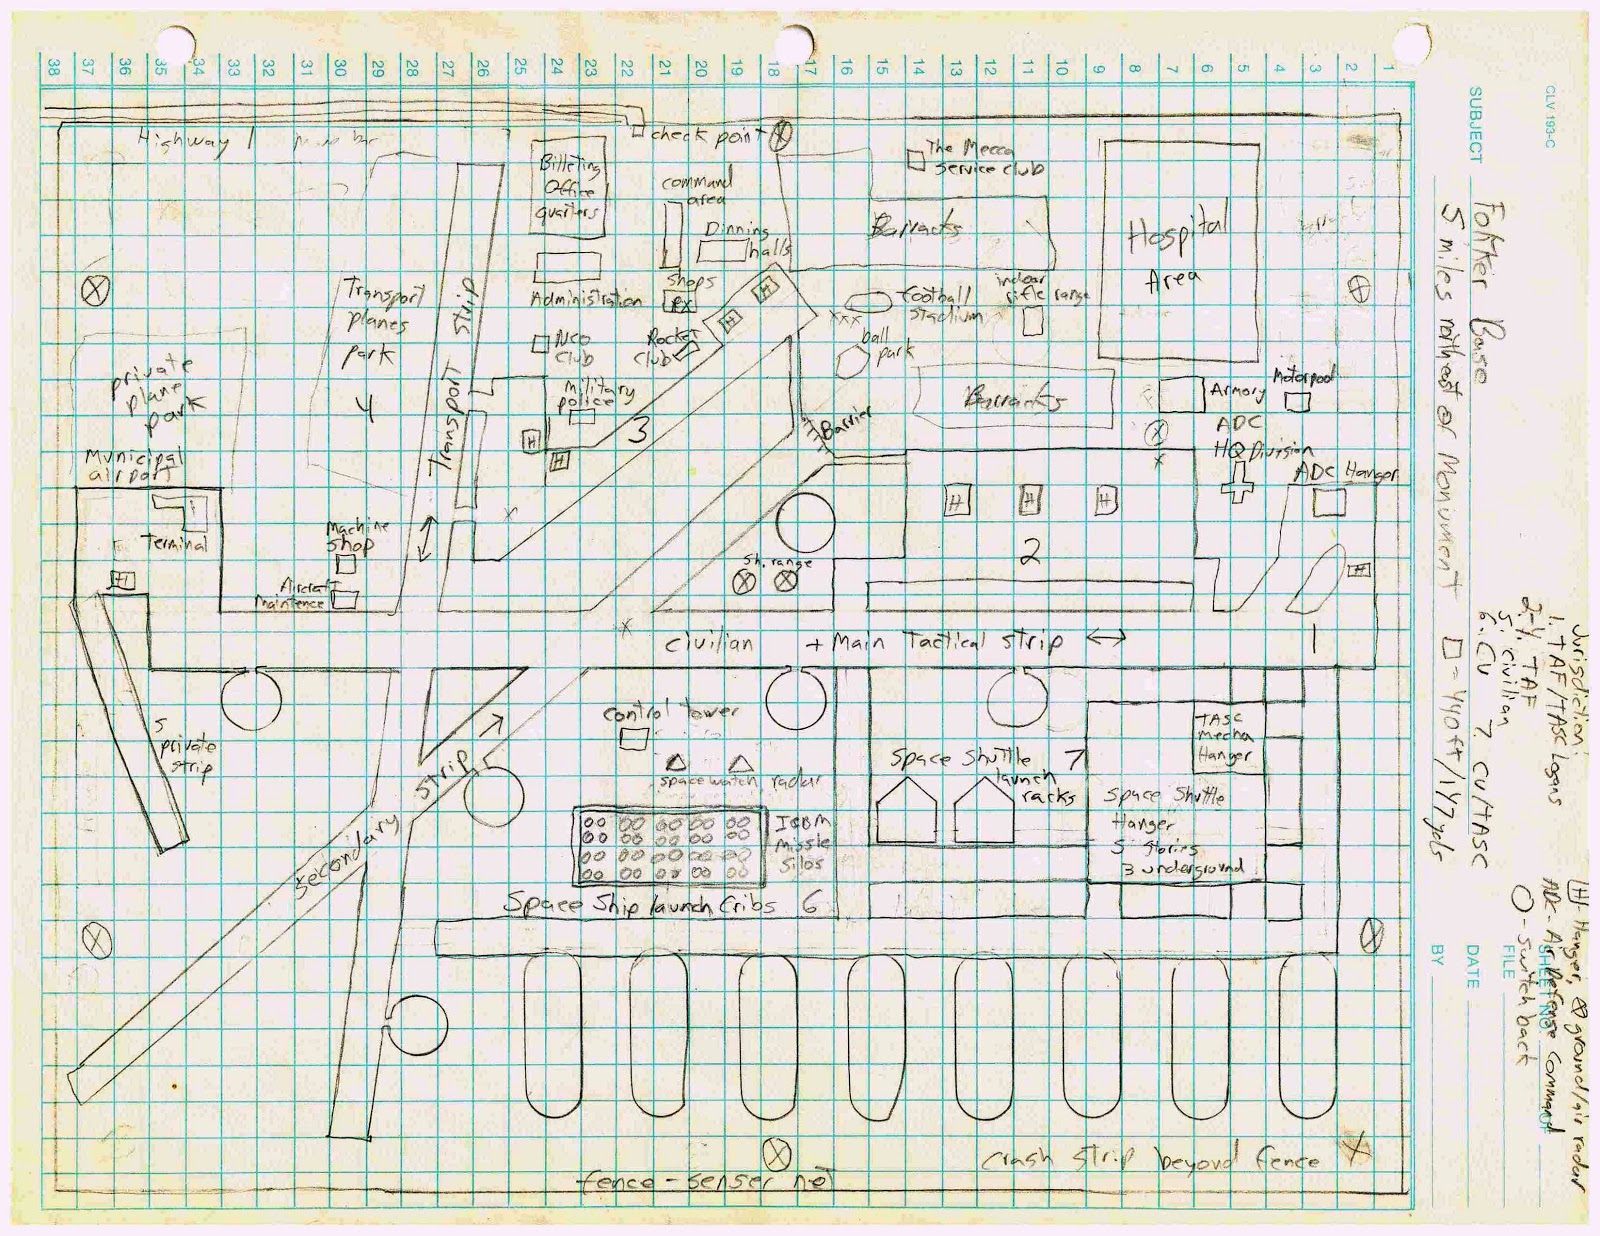 38 37 36 35 34 33 32 31 30 29 28 27 26 25 24 23 22 21 20 19 18 17 16 15 14 13 12 11 10 9 8 7 6 5 4 3 2 1
Highway 1
check point
The Mecca
Service club
Billeting
Office
quarters
command
area
Dinning
halls
Barracks
Hospital
Area
Transport
planes
park
4
Transport Strip
Administration
shops
PX
H
H
football
stadium
indoor
rifle range
xxx
NCO
Club
Rocket
Club
ball
park
private
plane
park
Military
police
3
H
H
Barrier
Barracks
Armory
Motorpool
ADC
HQ Division
ADC Hanger
Municipal
airport
Terminal
H
Machine
shop
Aircraft
Maintence
H
H
H
2
H
Sh. range
civilian + Main Tactical strip
1
5
private
strip
control tower
space watch radar
Strip
Secondary
ICBM
Missle
Silos
Space Ship launch Cribs 6
Space Shuttle
launch
racks
7
TASC
Mecha
Hanger
Space Shuttle
Hanger
5 stories
3 underground
crash strip beyond fence
fence - senser net
CLV 193-C
SUBJECT
Fokker Base
5 miles northeast of Monument
□ = 440ft/147yds
Jurisdiction:
1. TAF/TASC Logans
2-4. TAF
5. civilian
6. CV 7 CV/TASC
H - Hanger, ⊗ ground/air radar
ADC - Air Defense Command
O - switch back
SHEET NO.
FILE
DATE
BY
OF